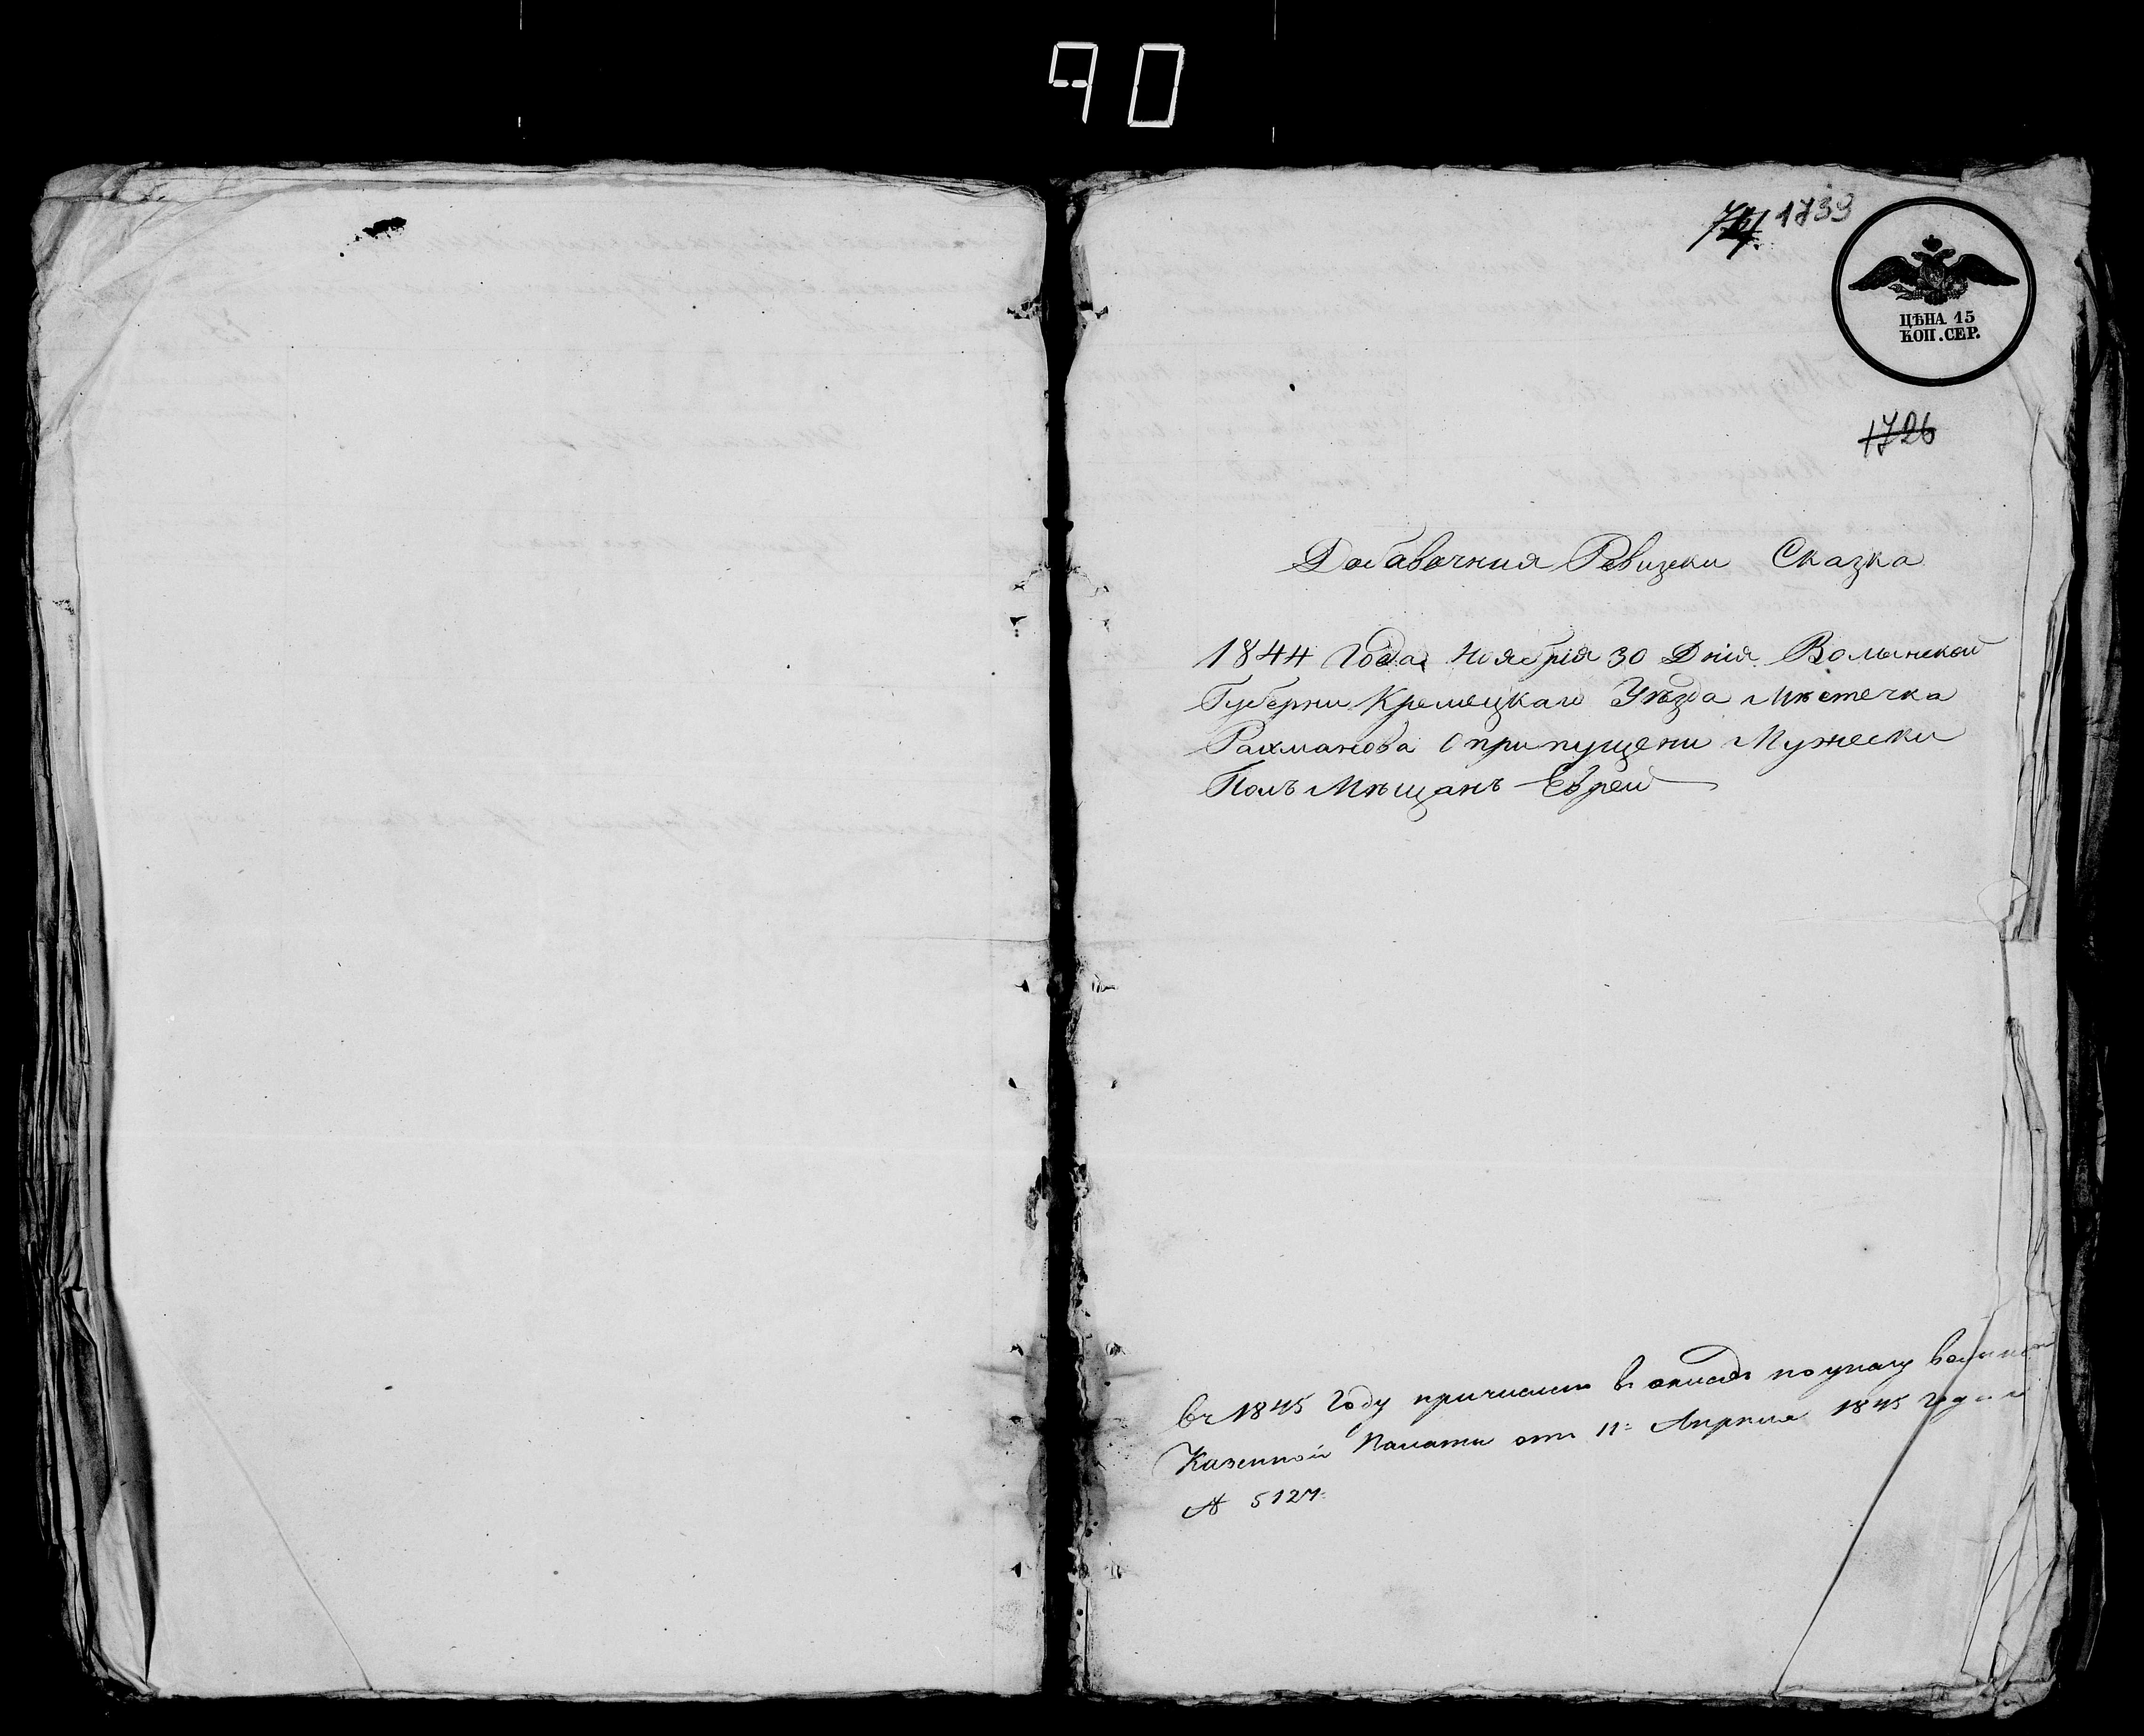 90
1739
ЦѢНА 15
КОП. СЕР.
1726
Добавочния Ревизски Сказка
1844 Года Ноября 30 Дния Волынской
Губерни Кремецкаго Уѣзда Мѣстечка
Рахманова О припущени Мужески
Полъ Мѣщанъ Еврей
Въ 1845 году причислен в окладъ по указу
Казенной Палаты отъ 11 Апреля 1845 года
№ 5127